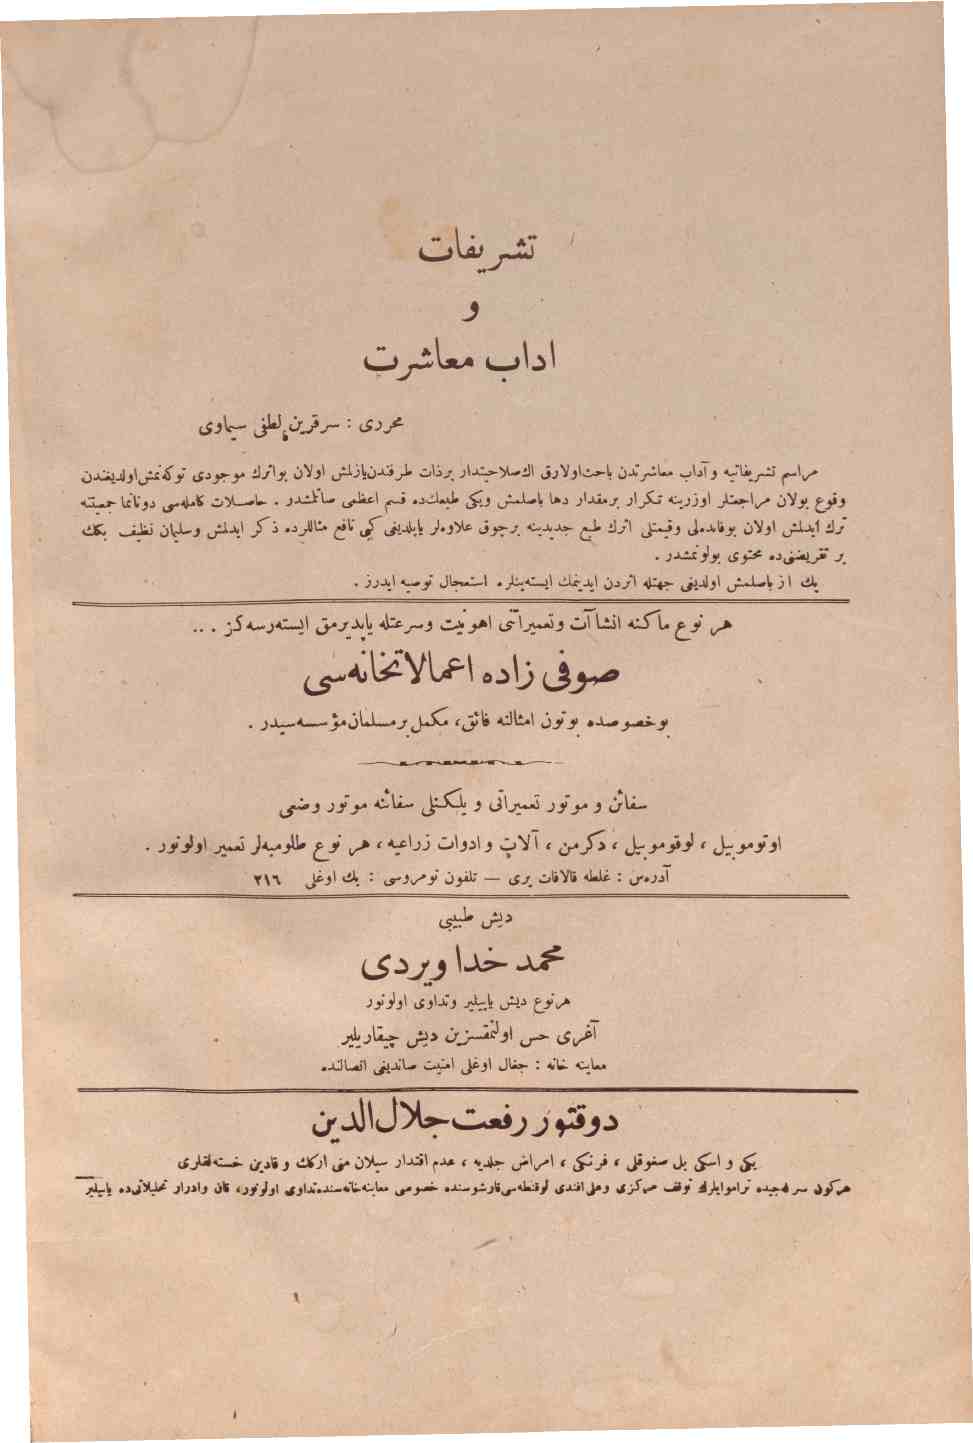 تشریفات
و
اداب معاشرت
محرری : سرقرین لطفی سیماوی
مراسم تشریفاتیه و آداب معاشرتدن باحث اولارق اك صلاحیتدار برذات طرفندن یازلمش اولان بواثرك موجودی توكه‌نمش اولدیغندن
وقوع بولان مراجعتلر اوزرینه تكرار برمقدار دها باصلمش ویكی طبعك‌ده قسم اعظمی صاتلمشدر . حاصلات كامله‌سی دونانما جمعیتنه
ترك ایدلمش اولان بوفائده‌لی وقیمتلی اثرك طبع جدیدینه برچوق علاوه‌لر یاپلدیغی كبی نافع مثاللرده ذكر ایدلمش وسلیمان نظیف بكك
بر تقریضنی‌ده محتوی بولونمشدر .
پك از باصلمش اولدیغی جهتله اثردن ایدینمك ایسته‌ینلره استعجال توصیه ایدرز .
هر نوع ماكنه انشاآت وتعمیراتنی اهونیت وسرعتله یاپدیرمق ایسته‌رسه‌كز . ..
صوفی زاده اعمالاتخانه‌سی
بوخصوصده بوتون امثالنه فائق، مكمل برمسلمان مؤسسه‌سیدر .
سفائن و موتور تعمیراتی و یلكنلی سفائنه موتور وضعی
اوتوموبیل ، لوقوموبیل ، دكرمن ، آلات و ادوات زراعیه ، هر نوع طلومبه‌لر تعمیر اولونور .
آدره‌س : غلطه قالافات یری — تلفون نومروسی : بك اوغلی ٢١٦
دیش طبیبی
محمد خدا ویردی
هرنوع دیش یاپیلیر وتداوی اولونور
آغری حس اولنمقسزین دیش چیقاریلیر
معاینه خانه : جغال اوغلی امنیت صاندیغی اتصالنده
دوقتور رفعت جلال‌الدین
یكی و اسكی بل صغوقلی ، فرنكی ، امراض جلدیه ، عدم اقتدار سیلان منی اركك و قادین خسته‌لقلری
هركون سركه‌جیده تراموایلرك توقف مركزی وهبی افندی لوقنطه‌سی قارشوسنده خصوصی معاینه‌خانه‌سنده تداوی اولونور، قان وادرار تحلیلاتی‌ده یاپیلیر